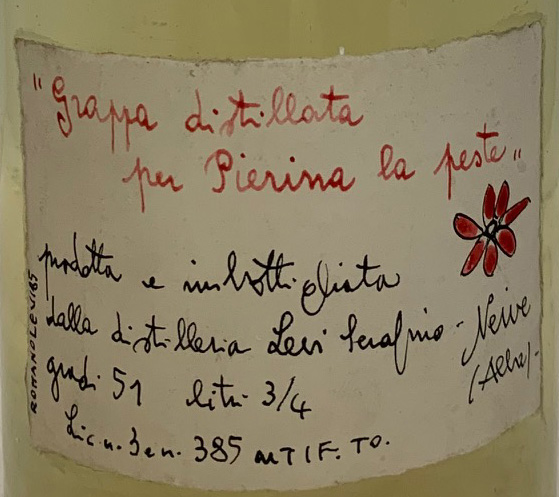 "Grappa distillata
per Pierina la peste"
prodotta e imbottigliata
dalla distilleria Levi Serafino - Neive
(Alba) -
gradi 51 litri 3/4
Lic. n. 3 e n. 385 UTIF. TO.
ROMANO LEVI 85